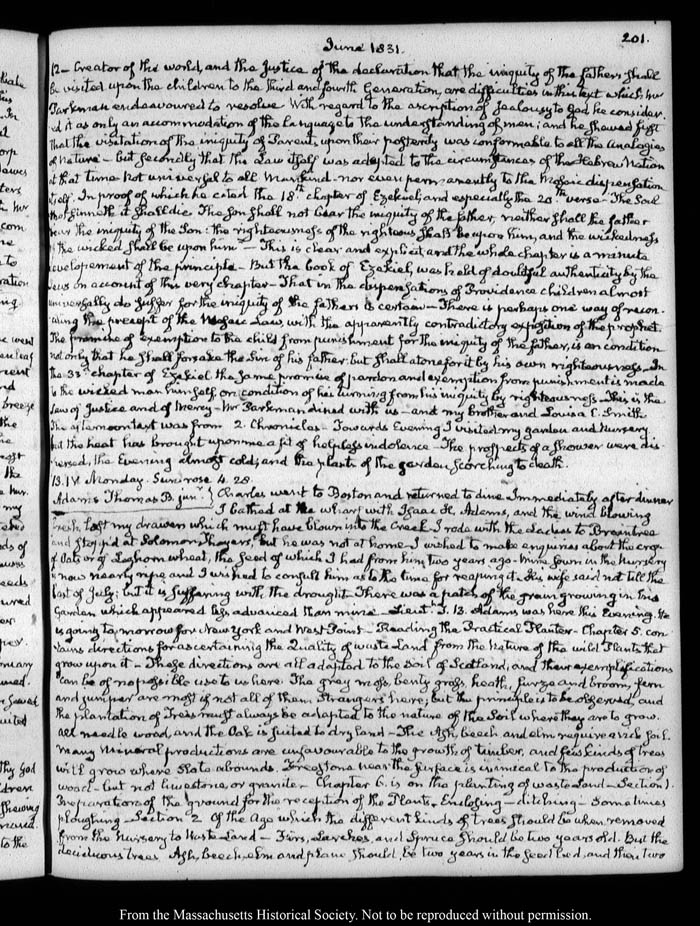 201.
June 1831.
12 — Creator of the world, and the Justice of the declaration that the iniquity of the fathers shall
be visited upon the children to the third and fourth Generation, are difficulties in this text which Mr
Parkman endeavoured to resolve. With regard to the ascription of Jealousy to God he consider-
ed it as only an accommodation of the Language to the understanding of men; and he shewed first
that the visitation of the iniquity of Parents, upon their posterity was conformable to all the Analogies
of nature — but secondly that the Law itself was adapted to the circumstances of the Hebrew Nation
at that time not universal to all Mankind — nor even permanently to the Mosaic dispensation
itself. In proof of which he cited the 18th chapter of Ezekiel, and especially the 20th verse — The Soul
that sinneth it shall die. The Son shall not bear the iniquity of the father, neither shall the father
bear the iniquity of the Son: the righteousness of the righteous shall be upon him, and the wickedness
of the wicked shall be upon him — This is clear and explicit, and the whole chapter is a minute
developement of the principle — But the book of Ezekiel, was held of doubtful authenticity by the
Jews on account of this very chapter — That in the dispensations of Providence children almost
universally do suffer for the iniquity of the fathers is certain — There is perhaps one way of recon-
ciling the precept of the Mosaic Law, with the apparently contradictory exposition of the prophet.
The promise of exemption to the child from punishment for the iniquity of the father, is on condition
not only that he shall forsake the sin of his father, but shall atone for it by his own righteousness. In
the 33d chapter of Ezekiel the same promise of pardon and exemption from punishment is made
to the wicked man himself, on condition of his turning from his iniquity by righteousness. This is the
Law of Justice and of Mercy — Mr Parkman dined with us — and my brother and Louisa C. Smith
The afternoon text was from 2. Chronicles — Towards Evening I visited my garden and Nursery
but the heat has brought upon me a fit of helpless indolence — The prospects of a shower were dis-
persed, the Evening almost cold, and the plants of the garden scorching to death.
13. IV. Monday. Sun rose 4. 28.
Adams Thomas B. junr } Charles went to Boston and returned to dine. Immediately after dinner
I bathed at the wharf with Isaac H. Adams, and the wind blowing
fresh, lost my drawers which must have blown into the Creek. I rode with the Ladies to Braintree
and stop'd at Solomon Thayer's, but he was not at home. I wished to make enquiries about the crop
of Oats or of Leghorn wheat, the seed of which I had from him two years ago — Mine sown in the Nursery
is now nearly ripe and I wished to consult him as to the time for reaping it. His wife said not till the
last of July; but it is suffering with the drought. There was a patch of the grain growing in his
Garden which appeared less advanced than mine — Lieut. T. B. Adams was here this Evening. He
is going to morrow for New York and West Point — Reading the Practical Planter — Chapter 5. con-
tains directions for ascertaining the Quality of waste Land from the nature of the wild Plants that
grow upon it — These directions are all adapted to the soil of Scotland, and their exemplifications
can be of no possible use to us here. The grey moss, benty grass, heath, furze and broom, fern
and juniper are most if not all of them, strangers here; but the principle is to be observed, and
the plantation of Trees must always be adapted to the nature of the Soil where they are to grow.
All needle wood, and the Oak is suited to dry land — The Ash, beech and elm require a rich soil.
Many Mineral productions are unfavourable to the growth of timber, and few kinds of trees
will grow where Slate abounds. Freestone near the surface is inimical to the production of
wood — but not limestone, or granite — Chapter 6. is on the planting of waste Land — Section 1.
Preparation of the ground for the reception of the Plants, Enclosing — ditching — sometimes
ploughing — Section 2. Of the age which the different kinds of trees should be when removed
from the Nursery to Waste Land — Firs, Larches, and Spruce should be two years old. But the
deciduous trees Ash, beech, elm and plane should, be two years in the seed bed, and then two
From the Massachusetts Historical Society. Not to be reproduced without permission.